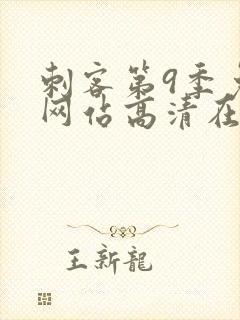 刺客第9季
网估高清在
王新龍